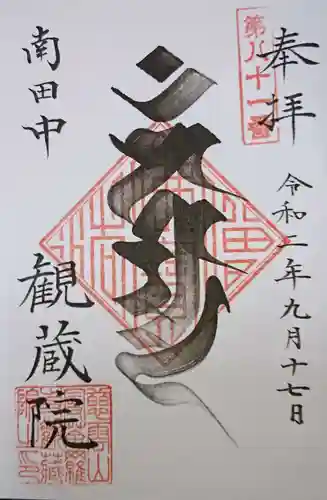 第八十一番
奉拝
令和二年九月十七日
南田中
観蔵院